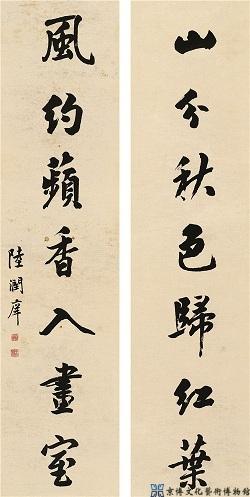 山分秋色歸红葉
風約蘋香入畫室
陸潤庠
京博文化藝術博物館